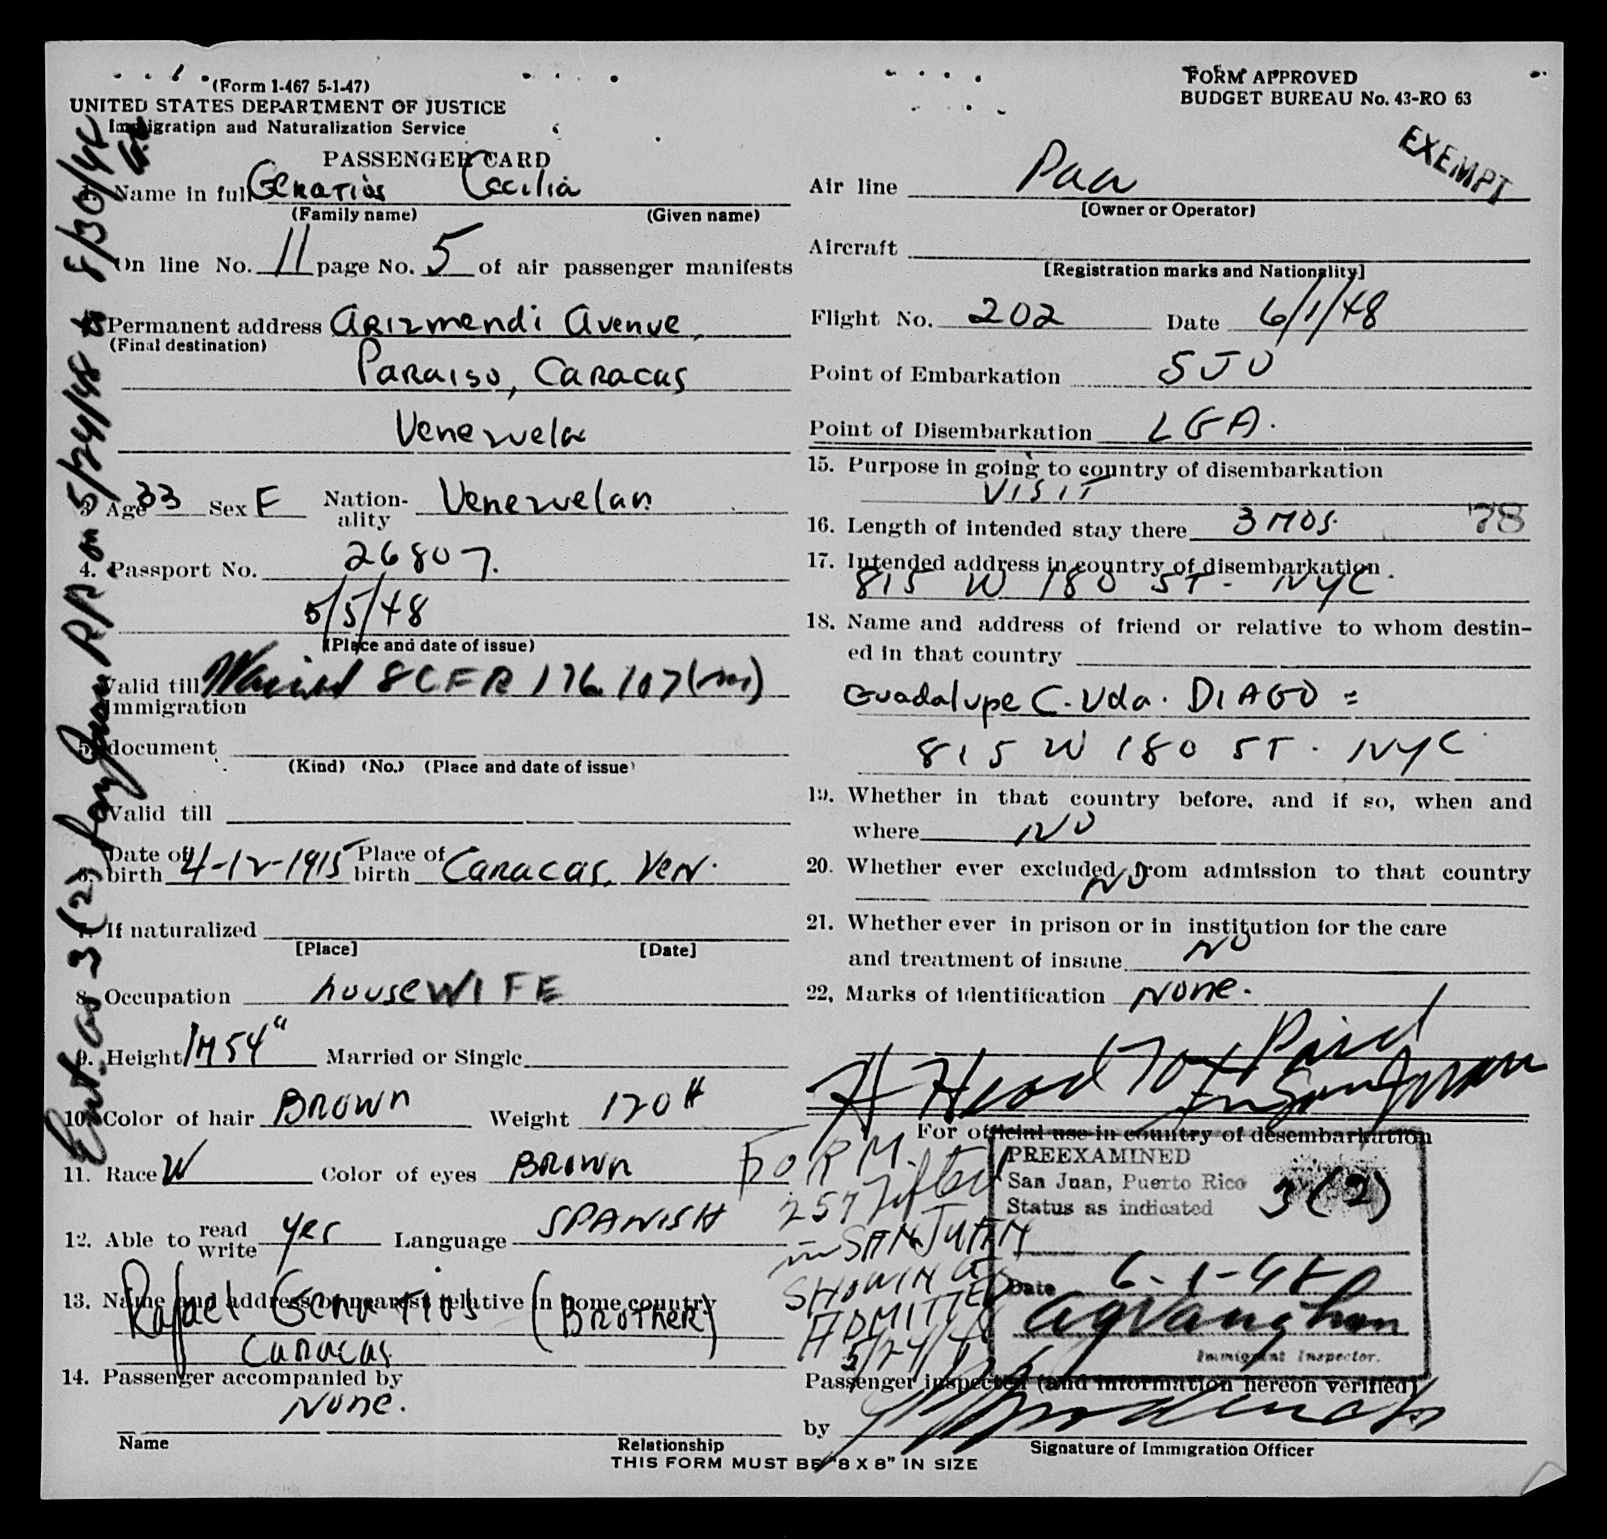 (Form I-467 5-1-47)
UNITED STATES DEPARTMENT OF JUSTICE
Immigration and Naturalization Service
FORM APPROVED
BUDGET BUREAU No. 43-RO 63
EXEMPT
PASSENGER CARD
Name in full Cecilia
(Family name) (Given name)
On line No. 11 page No. 5 of air passenger manifests
Permanent address Arizmendi Avenue,
(Final destination)
Paraiso, Caracas
Venezuela
3. Age 33 Sex F Nationality Venezuelan
4. Passport No. 26807.
5/5/48
(Place and date of issue)
Valid till Waived 8 CFR 176.107(m)
Immigration
5. document
(Kind) (No.) (Place and date of issue)
Valid till
6. Date of birth 4-12-1915 Place of birth Caracas, Ven.
7. If naturalized
[Place] [Date]
8. Occupation houseWIFE
9. Height 1M 54" Married or Single
10. Color of hair Brown Weight 120#
11. Race W Color of eyes Brown
12. Able to read write yes Language SPANISH
13. Name and address of nearest relative in home country
Rafael (Brother)
Caracas
14. Passenger accompanied by
None.
Name Relationship
Air line Paa
[Owner or Operator]
Aircraft
[Registration marks and Nationality]
Flight No. 202 Date 6/1/48
Point of Embarkation SJU
Point of Disembarkation LGA.
15. Purpose in going to country of disembarkation
VISIT
16. Length of intended stay there 3 MOS. 78
17. Intended address in country of disembarkation.
815 W 180 ST. NYC
18. Name and address of friend or relative to whom destined in that country
Guadalupe C. Vda. DIAGO =
815 W 180 ST. NYC
19. Whether in that country before, and if so, when and
where NO
20. Whether ever excluded from admission to that country
NO
21. Whether ever in prison or in institution for the care
and treatment of insane NO
22. Marks of identification None.
Head Tax Paid
In San Juan
For official use in country of desembarkation
FORM
257 lifted
in SAN JUAN
SHOWING
ADMITTED
5/24/48
PREEXAMINED
San Juan, Puerto Rico
Status as indicated 3(2)
Date 6-1-48
Immigrant Inspector.
Passenger inspected (and information hereon verified)
by
Signature of Immigration Officer
THIS FORM MUST BE "8 X 8" IN SIZE
Ent. as 3(2) San Juan P.R. on 5/24/48 to 8/30/48